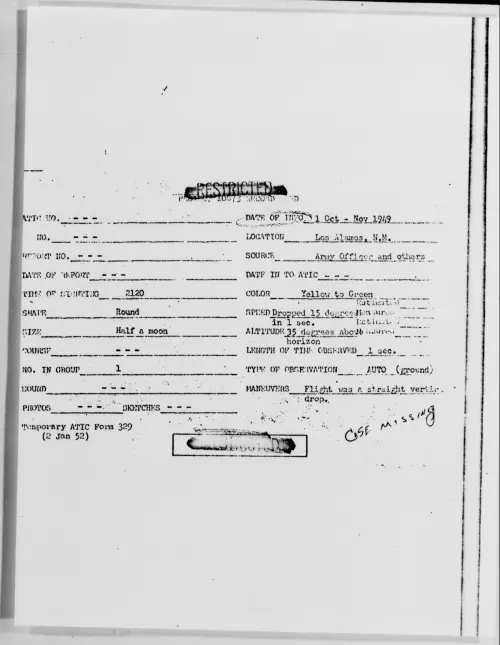 RESTRICTED
ATIC NO. - - -
DATE OF INFO. 1 Oct - Nov 1949
NO.
LOCATION Los Alamos, N.M.
REPORT NO. - - -
SOURCE Army Officer and others
DATE OF REPORT - - -
DATE IN TO ATIC - - -
TIME OF SIGHTING 2120
COLOR Yellow to Green
SHAPE Round
SPEED Dropped 15 degrees
in 1 sec.
SIZE Half a moon
ALTITUDE 35 degrees above
horizon
COURSE - - -
LENGTH OF TIME OBSERVED 1 sec.
NO. IN GROUP 1
TYPE OF OBSERVATION AUTO (ground)
SOUND - - -
MANEUVERS Flight was a straight
drop.
PHOTOS - - - SKETCHES - - -
Temporary ATIC Form 329
(2 Jan 52)
CASE MISSING